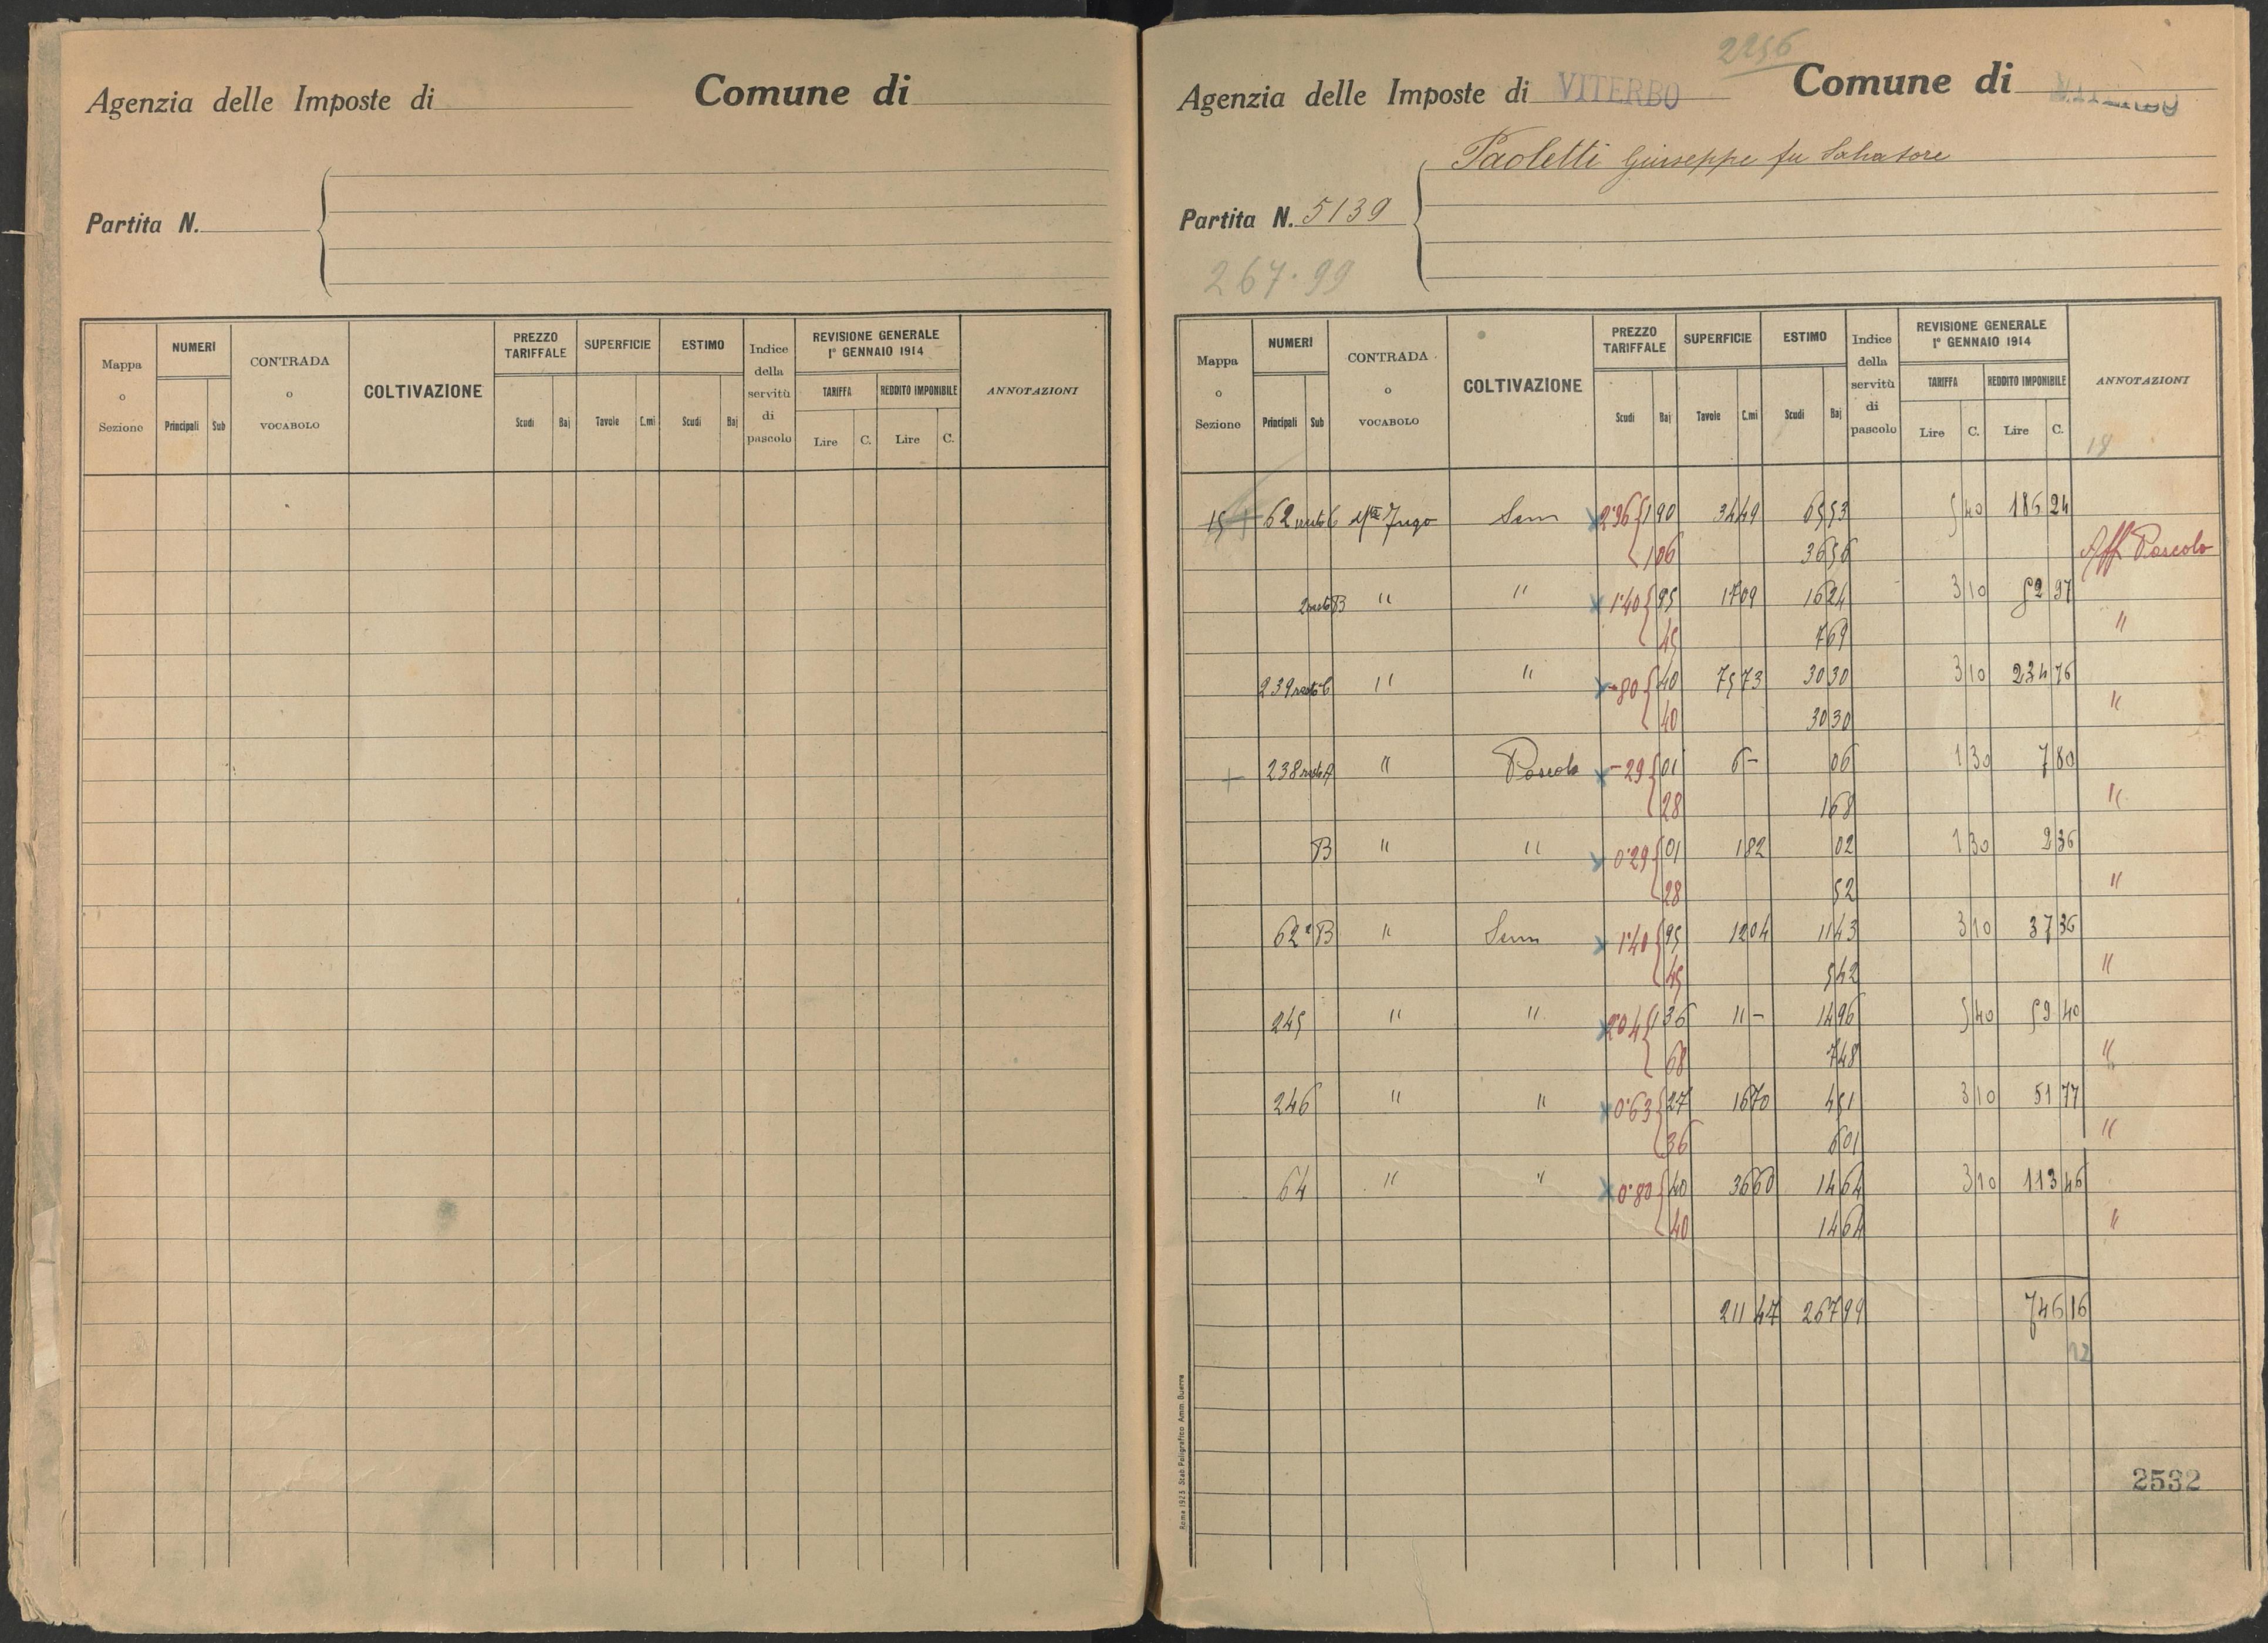 Agenzia delle Imposte di Comune di
Partita N.
Mappa o Sezione
NUMERI
Principali Sub
CONTRADA o VOCABOLO
COLTIVAZIONE
PREZZO TARIFFALE
Scudi Baj
SUPERFICIE
Tavole C.mi
ESTIMO
Scudi Baj
Indice della servitù di pascolo
REVISIONE GENERALE
1° GENNAIO 1914
TARIFFA REDDITO IMPONIBILE
Lire C. Lire C.
ANNOTAZIONI
2256
Agenzia delle Imposte di VITERBO Comune di VITERBO
Paoletti Giuseppe fu Salvatore
Partita N. 5139
267.99
Mappa o Sezione
NUMERI
Principali Sub
CONTRADA o VOCABOLO
COLTIVAZIONE
PREZZO TARIFFALE
Scudi Baj
SUPERFICIE
Tavole C.mi
ESTIMO
Scudi Baj
Indice della servitù di pascolo
REVISIONE GENERALE
1° GENNAIO 1914
TARIFFA REDDITO IMPONIBILE
Lire C. Lire C.
ANNOTAZIONI
18
15 62 resto Sem 2.96 1 90 34 49 65 53 5 40 186 24
1 06 36 56 Aff Pascolo
2 resto B " " 1.40 95 17 09 16 24 3 10 52 97
45 7 69 "
239 resto " " -80 40 75 73 30 30 3 10 234 76
40 30 30 "
238 resto A " Pascolo -29 01 6 - 06 1 30 7 80
28 1 68 "
B " " 0.29 01 1 82 02 1 30 2 36
28 52 "
62² B " Sem 1.40 95 12 04 11 43 3 10 37 36
45 5 42 "
245 " " 2.04 1 36 11 - 14 96 5 40 59 40
68 7 48 "
246 " " 0.63 27 16 70 4 51 3 10 51 77
36 6 01 "
64 " " 0.80 40 36 60 14 64 3 10 113 46
40 14 64 "
211 47 267 99 746 16
12
2532
Roma 1923 Stab Poligrafico Amm. Guerra